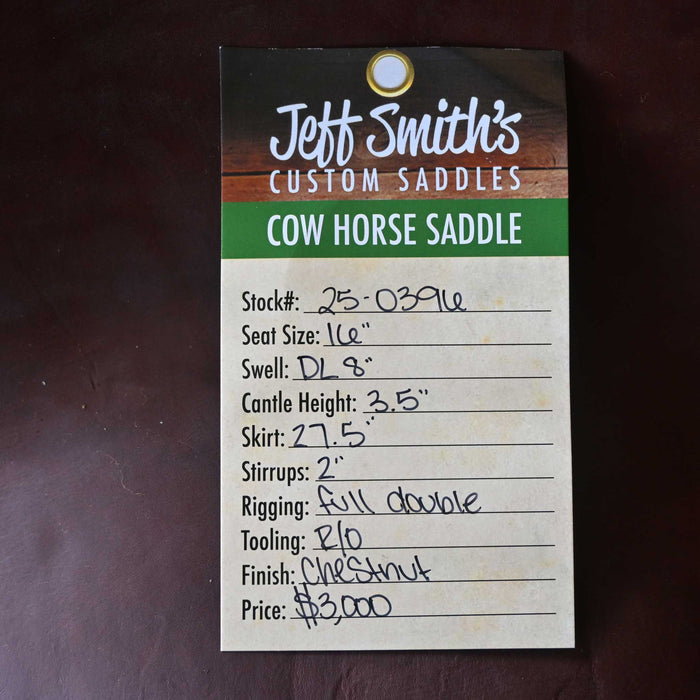 Jeff Smith's
CUSTOM SADDLES
COW HORSE SADDLE
Stock#: 25-0396
Seat Size: 16"
Swell: DL 8"
Cantle Height: 3.5"
Skirt: 27.5"
Stirrups: 2"
Rigging: full double
Tooling: R/O
Finish: Chestnut
Price: $3,000